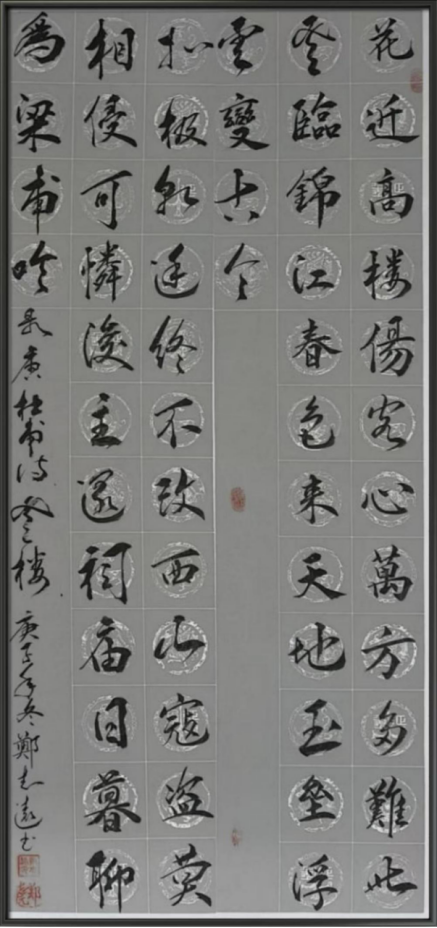 花近高楼傷客心萬方多難此
登臨錦江春色来天地玉壘浮
雲變古今
北极朝廷终不改西山寇盗莫
相侵可憐後主還祠庙日暮聊
爲梁甫吟录唐杜甫诗登楼庚子年冬鄭志遠书